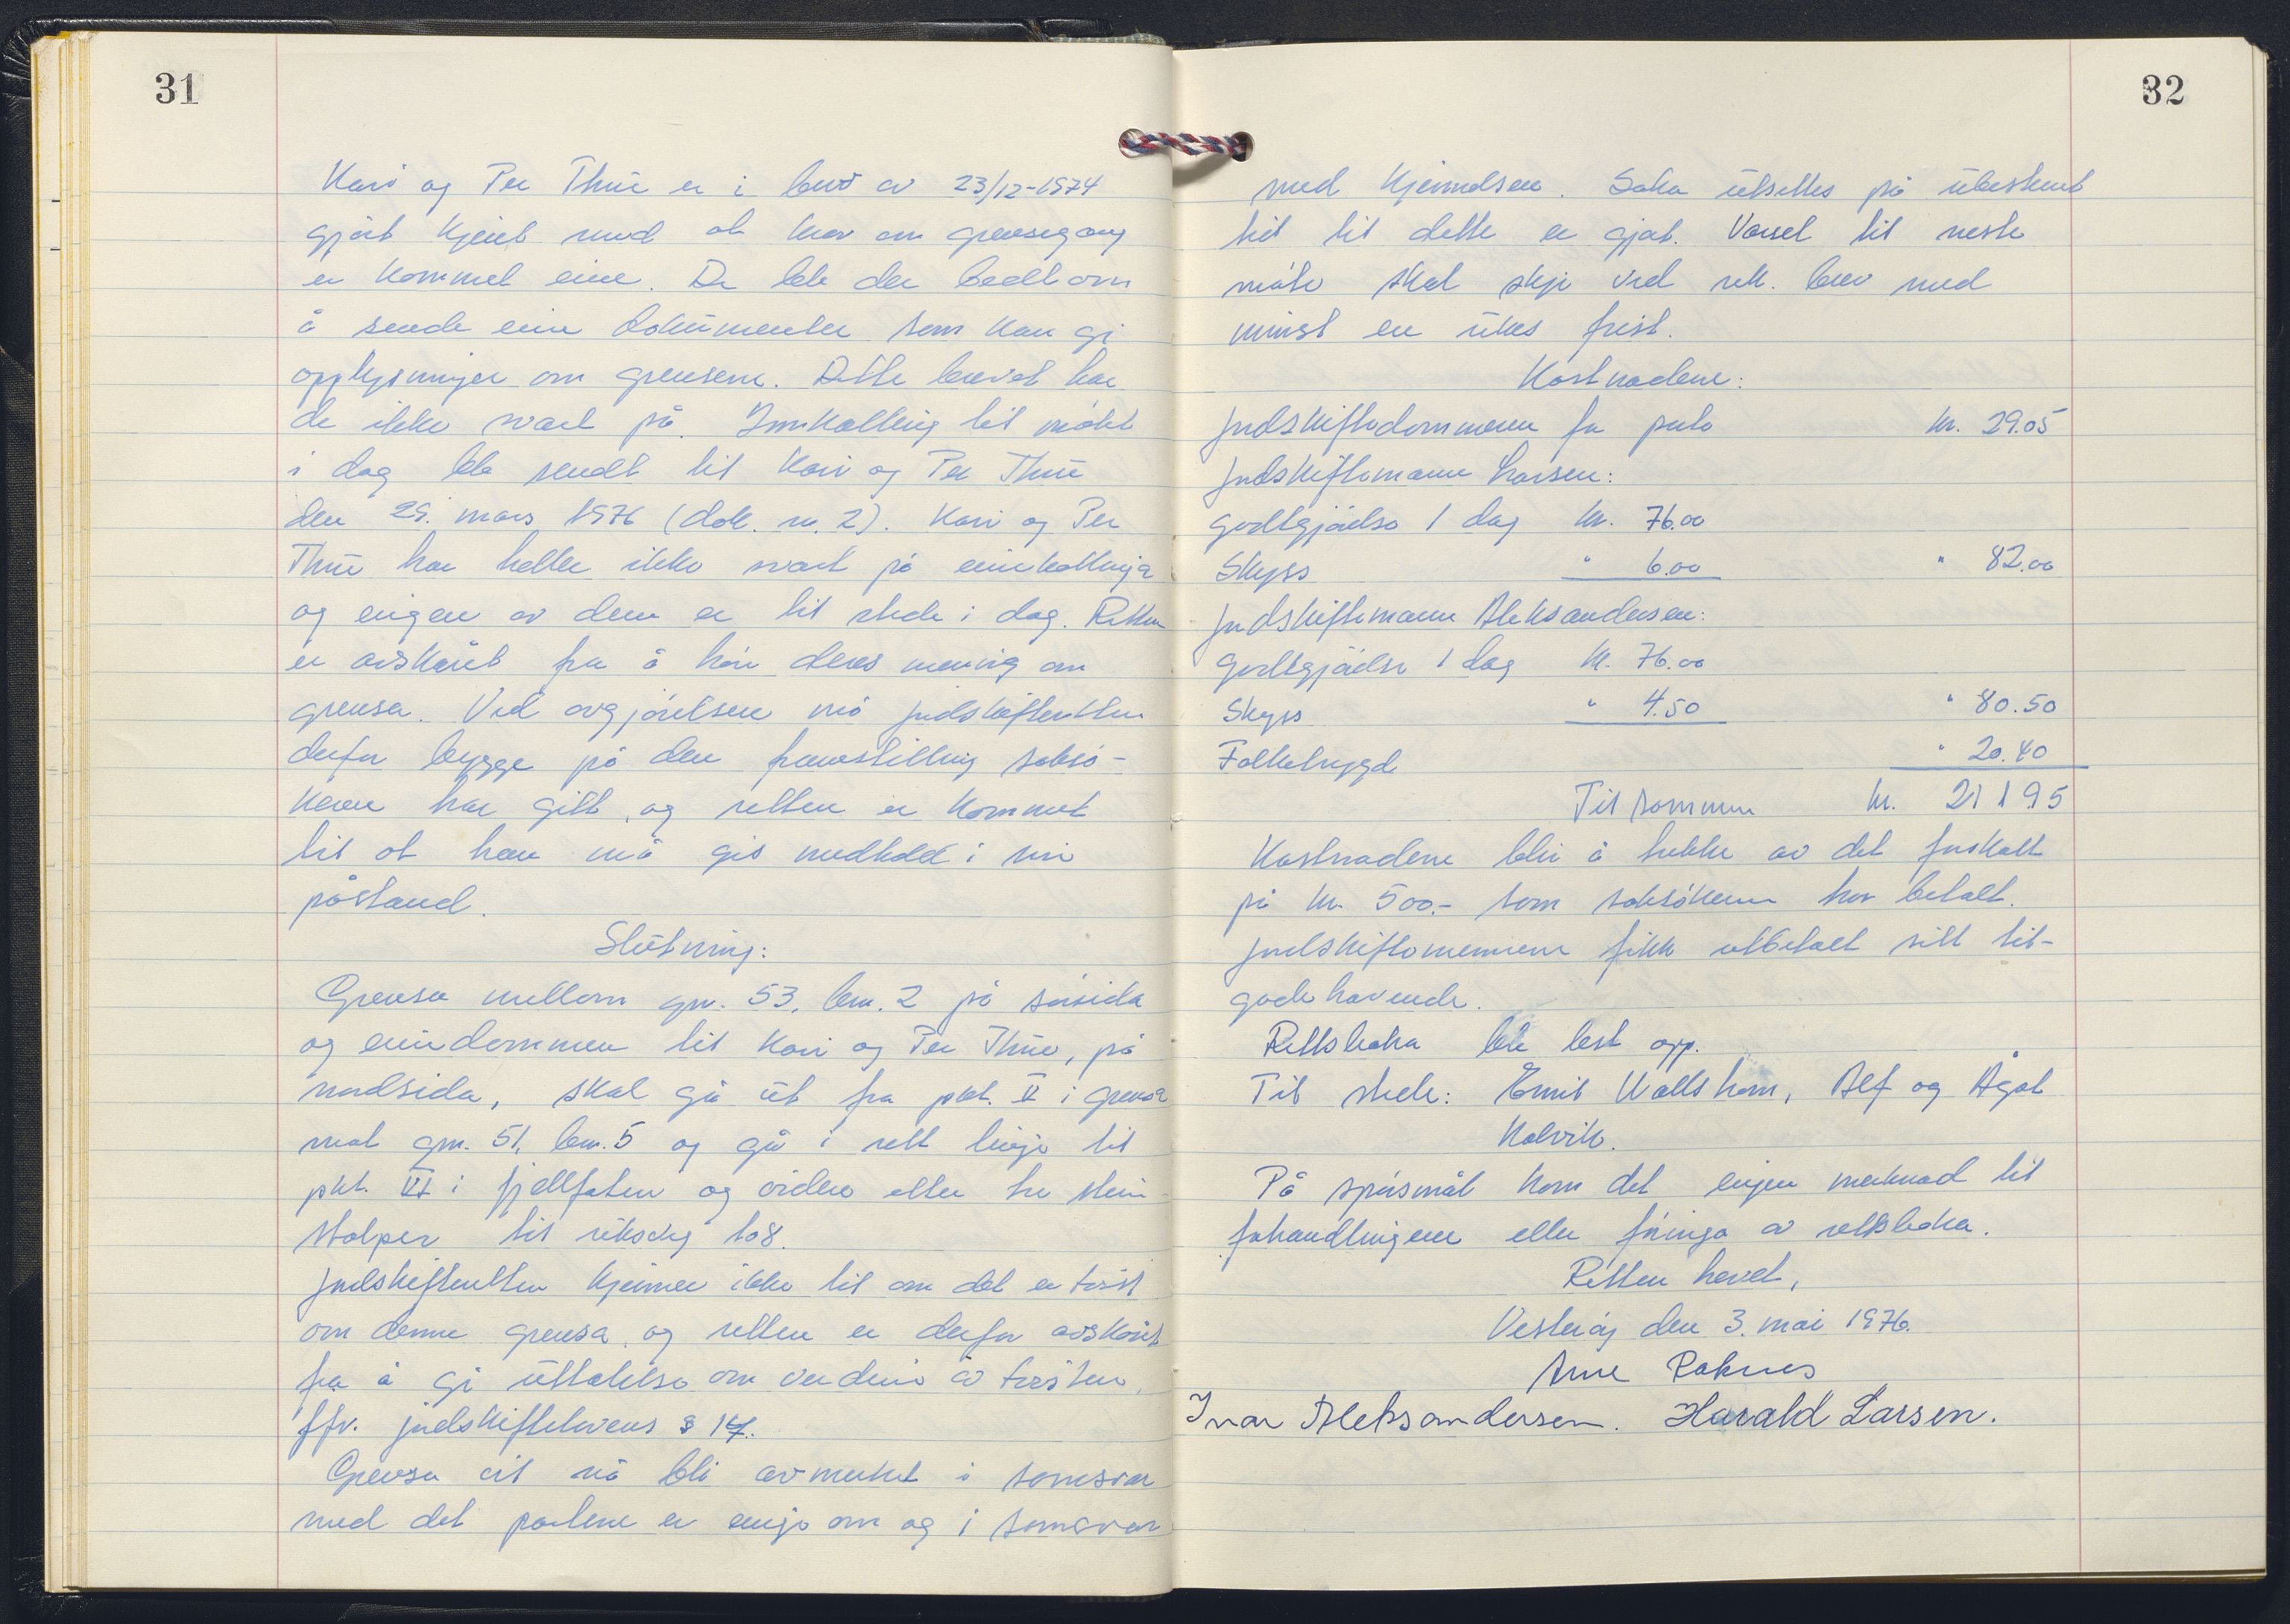 31
Kari og Per Thue er i brev av 23/12-1974
gjort kjent med at krav om grensegang
er kommet inn. De ble der bedt om
å sende inn dokumenter som kan gi
opplysninger om grensene. Dette brevet har
de ikke svart på. Innkalling til møtet
i dag ble sendt til Kari og Per Thue
den 29. mars 1976 (dok. nr. 2). Kari og Per
Thue har heller ikke svart på innkallinga
og ingen av dem er til stede i dag. Retten
er avskåret fra å høre deres mening om
grensa. Ved avgjørelsen må jordskifteretten
derfor bygge på den framstilling saksø-
keren har gitt, og retten er kommet
til at han må gis medhold i sin
påstand.
Slutning:
Grensa mellom gnr. 53, bnr. 2 på sørsida
og eiendommen til Kari og Per Thue, på
nordsida, skal gå ut fra pkt. V i grensa
mot gnr. 51, bnr. 5 og gå i rett linje til
pkt. VI i fjellfoten og videre etter tre stein-
stolper til riksveg 108.
Jordskifteretten kjenner ikke til om det er tvist
om denne grensa, og retten er derfor avskåret
fra å gi uttalelse om verdien av tvisten,
jfr. jordskiftelovens § 17.
Grensa vil nå bli avmerket i samsvar
med det partene er enige om og i samsvar
32
med kjennelsen. Saka utsettes på ubestemt
tid til dette er gjort. Varsel til neste
møte skal skje ved rek. brev med
minst en ukes frist.
Kostnadene:
Jordskiftedommeren for porto kr. 29.05
Jordskiftemann Larsen:
Godtgjørelse 1 dag kr. 76.00
Skyss " 6.00 " 82.00
Jordskiftemann Aleksandersen:
Godtgjørelse 1 dag kr. 76.00
Skyss " 4.50 " 80.50
Folketrygd " 20.40
Til sammen kr. 211.95
Kostnadene blir å trekke av det forskott
på kr. 500.- som saksøkeren har betalt.
Jordskiftemennene fikk utbetalt sitt til-
godehavende.
Rettsboka ble lest opp.
Til stede: Emil Walls hom, Alf og Ågot
Kalvik.
På spørsmål kom det ingen merknad til
forhandlingene eller føringa av rettsboka.
Retten hevet,
Vesterøy den 3. mai 1976.
Arne Raknes
Ivar Aleksandersen. Harald Larsen.